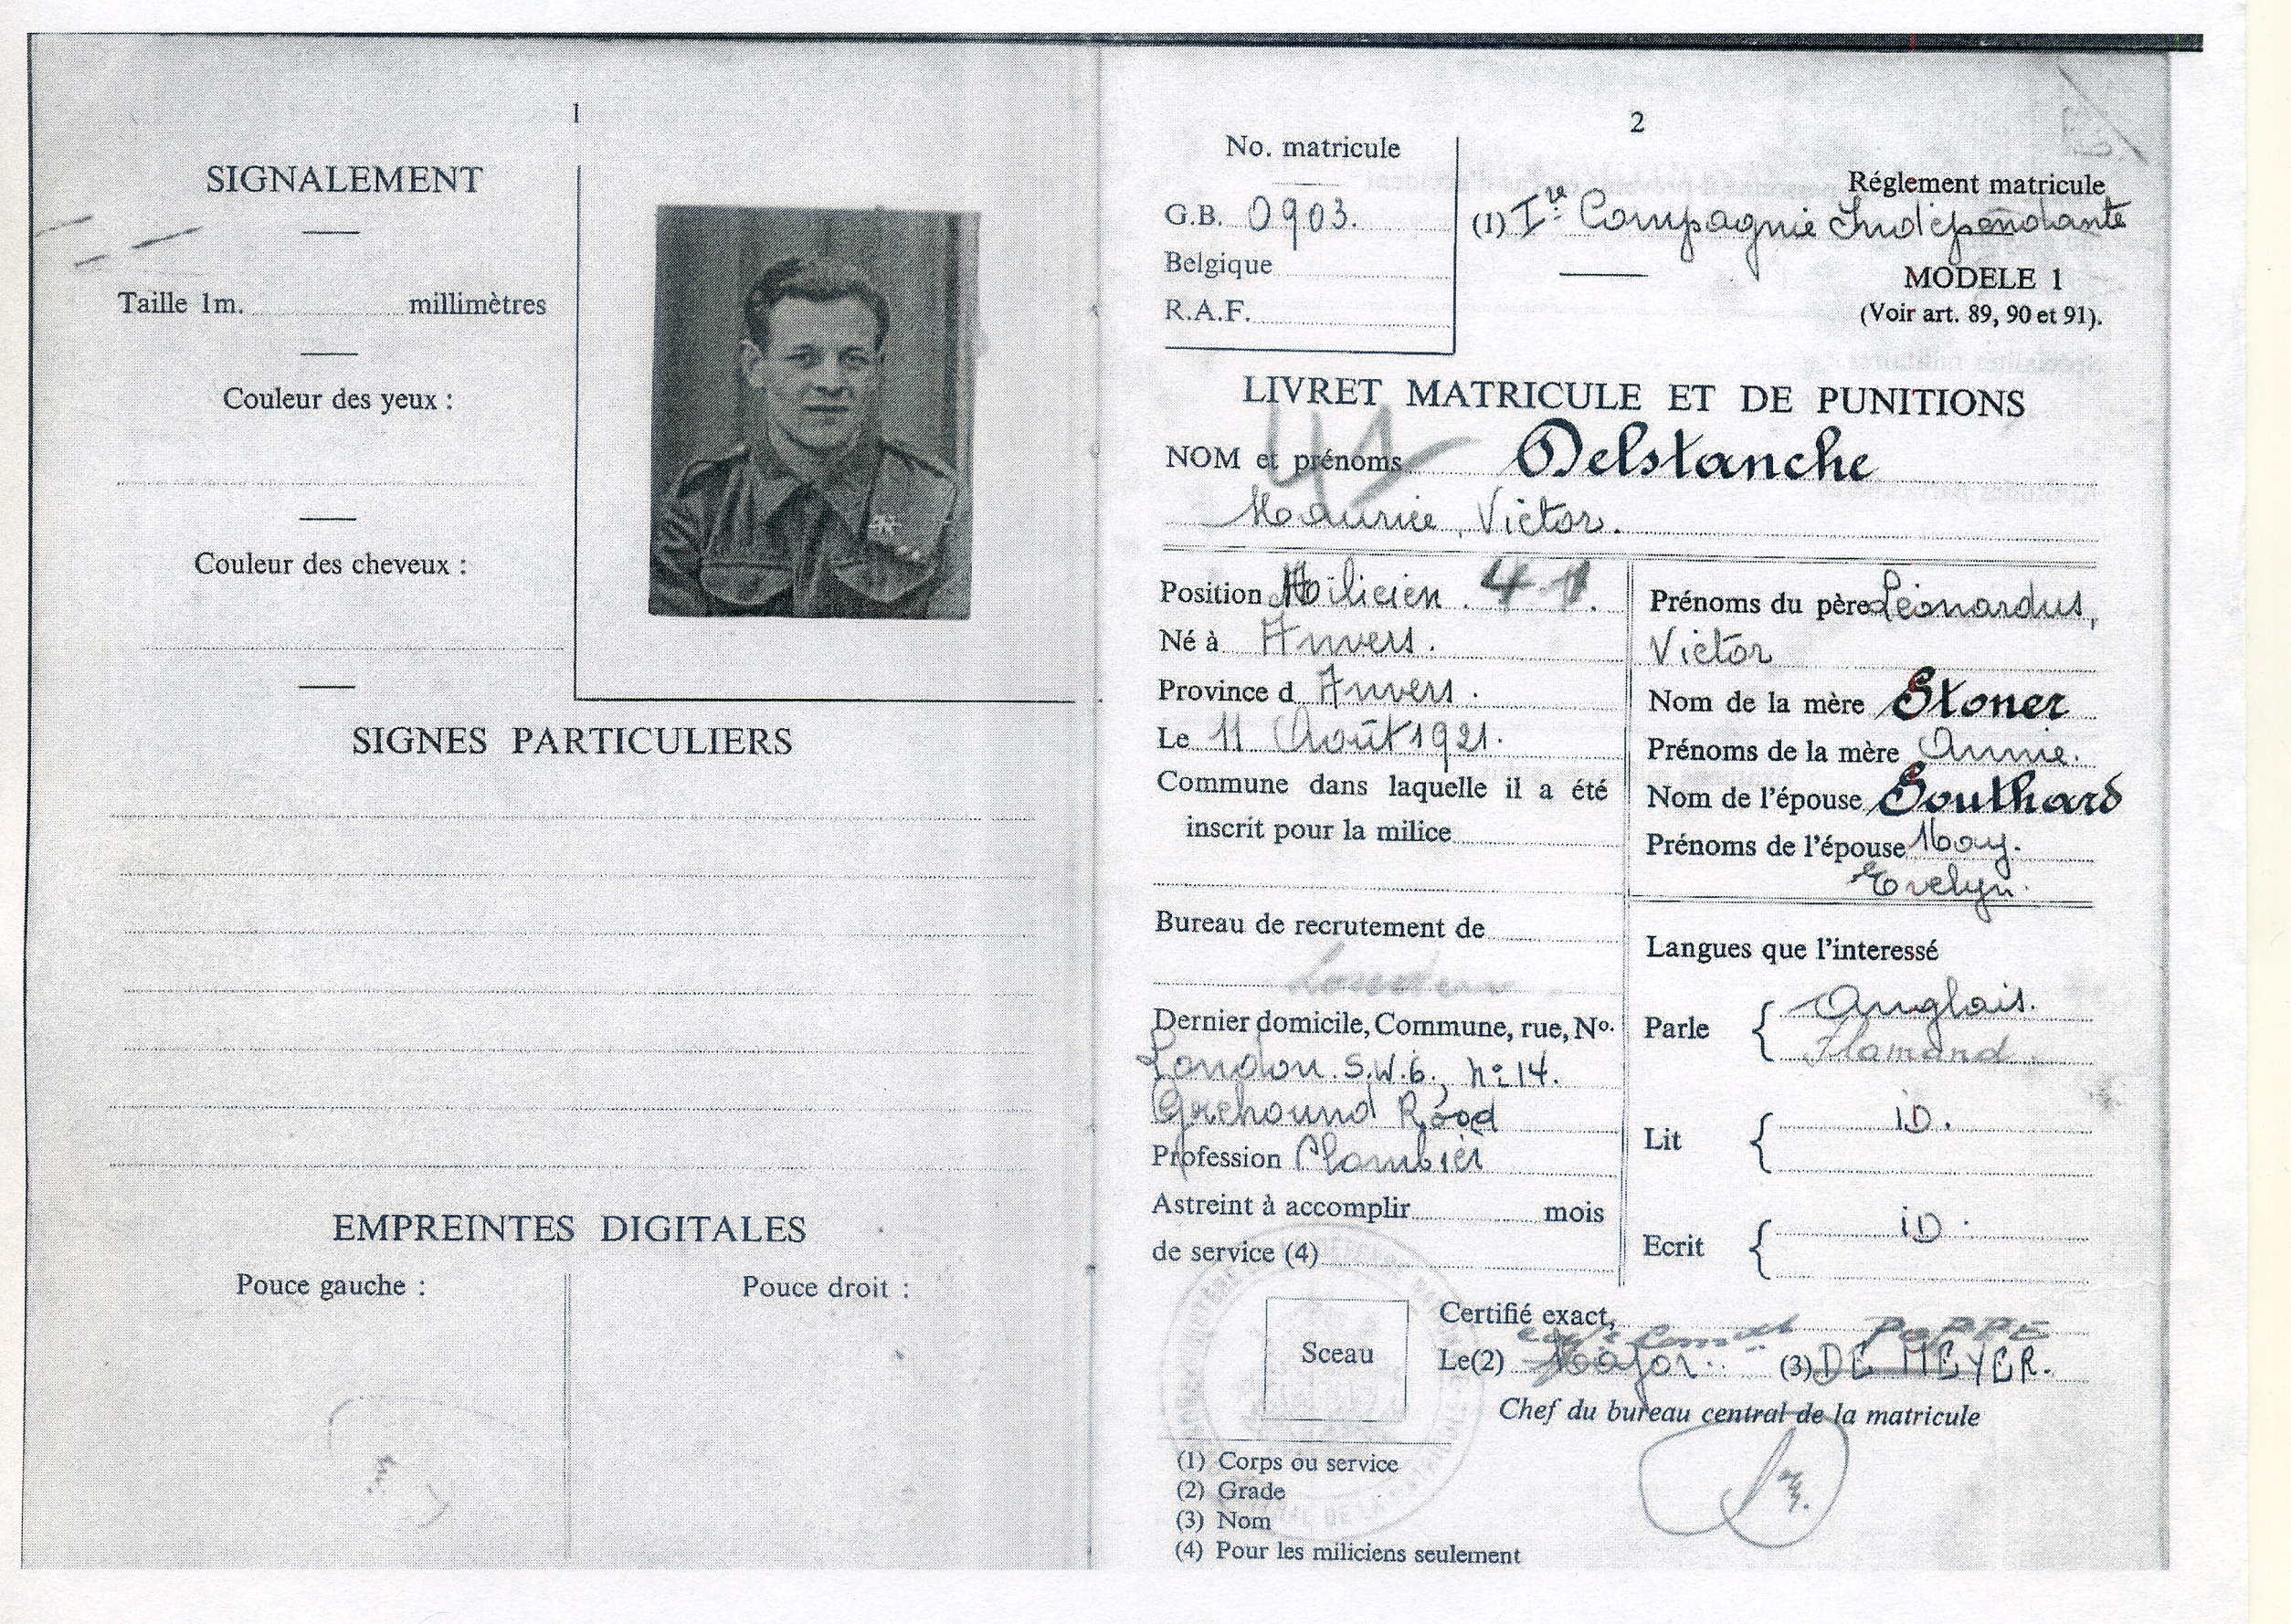 1
SIGNALEMENT
Taille 1m. millimètres
Couleur des yeux :
Couleur des cheveux :
SIGNES PARTICULIERS
EMPREINTES DIGITALES
Pouce gauche :
Pouce droit :
2
No. matricule
G.B. 0903.
Belgique
R.A.F.
Réglement matricule
(1) Ire Compagnie Indépendante
MODELE 1
(Voir art. 89, 90 et 91).
LIVRET MATRICULE ET DE PUNITIONS
41
NOM et prénoms Delstanche
Maurice, Victor.
Position Milicien. 41.
Né à Anvers.
Province d Anvers.
Le 11 Août 1921.
Commune dans laquelle il a été
inscrit pour la milice
Bureau de recrutement de
London
Dernier domicile, Commune, rue, No.
London. S.W.6., No 14.
Grehound Road
Profession Plombier
Astreint à accomplir mois
de service (4)
Prénoms du père Léonardus,
Victor
Nom de la mère Stoner
Prénoms de la mère Annie.
Nom de l'épouse Southard
Prénoms de l'épouse May.
Evelyn.
Langues que l'interessé
Parle { Anglais.
Flamand.
Lit { iD.
Ecrit { iD.
Sceau
Certifié exact,
POPPE
Le(2) Major. (3) DE MEYER.
Chef du bureau central de la matricule
(1) Corps ou service
(2) Grade
(3) Nom
(4) Pour les miliciens seulement